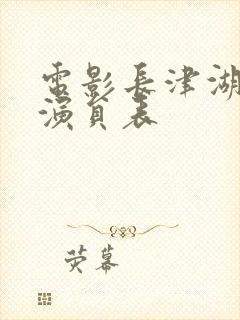 電影長津湖
演員表
荧幕